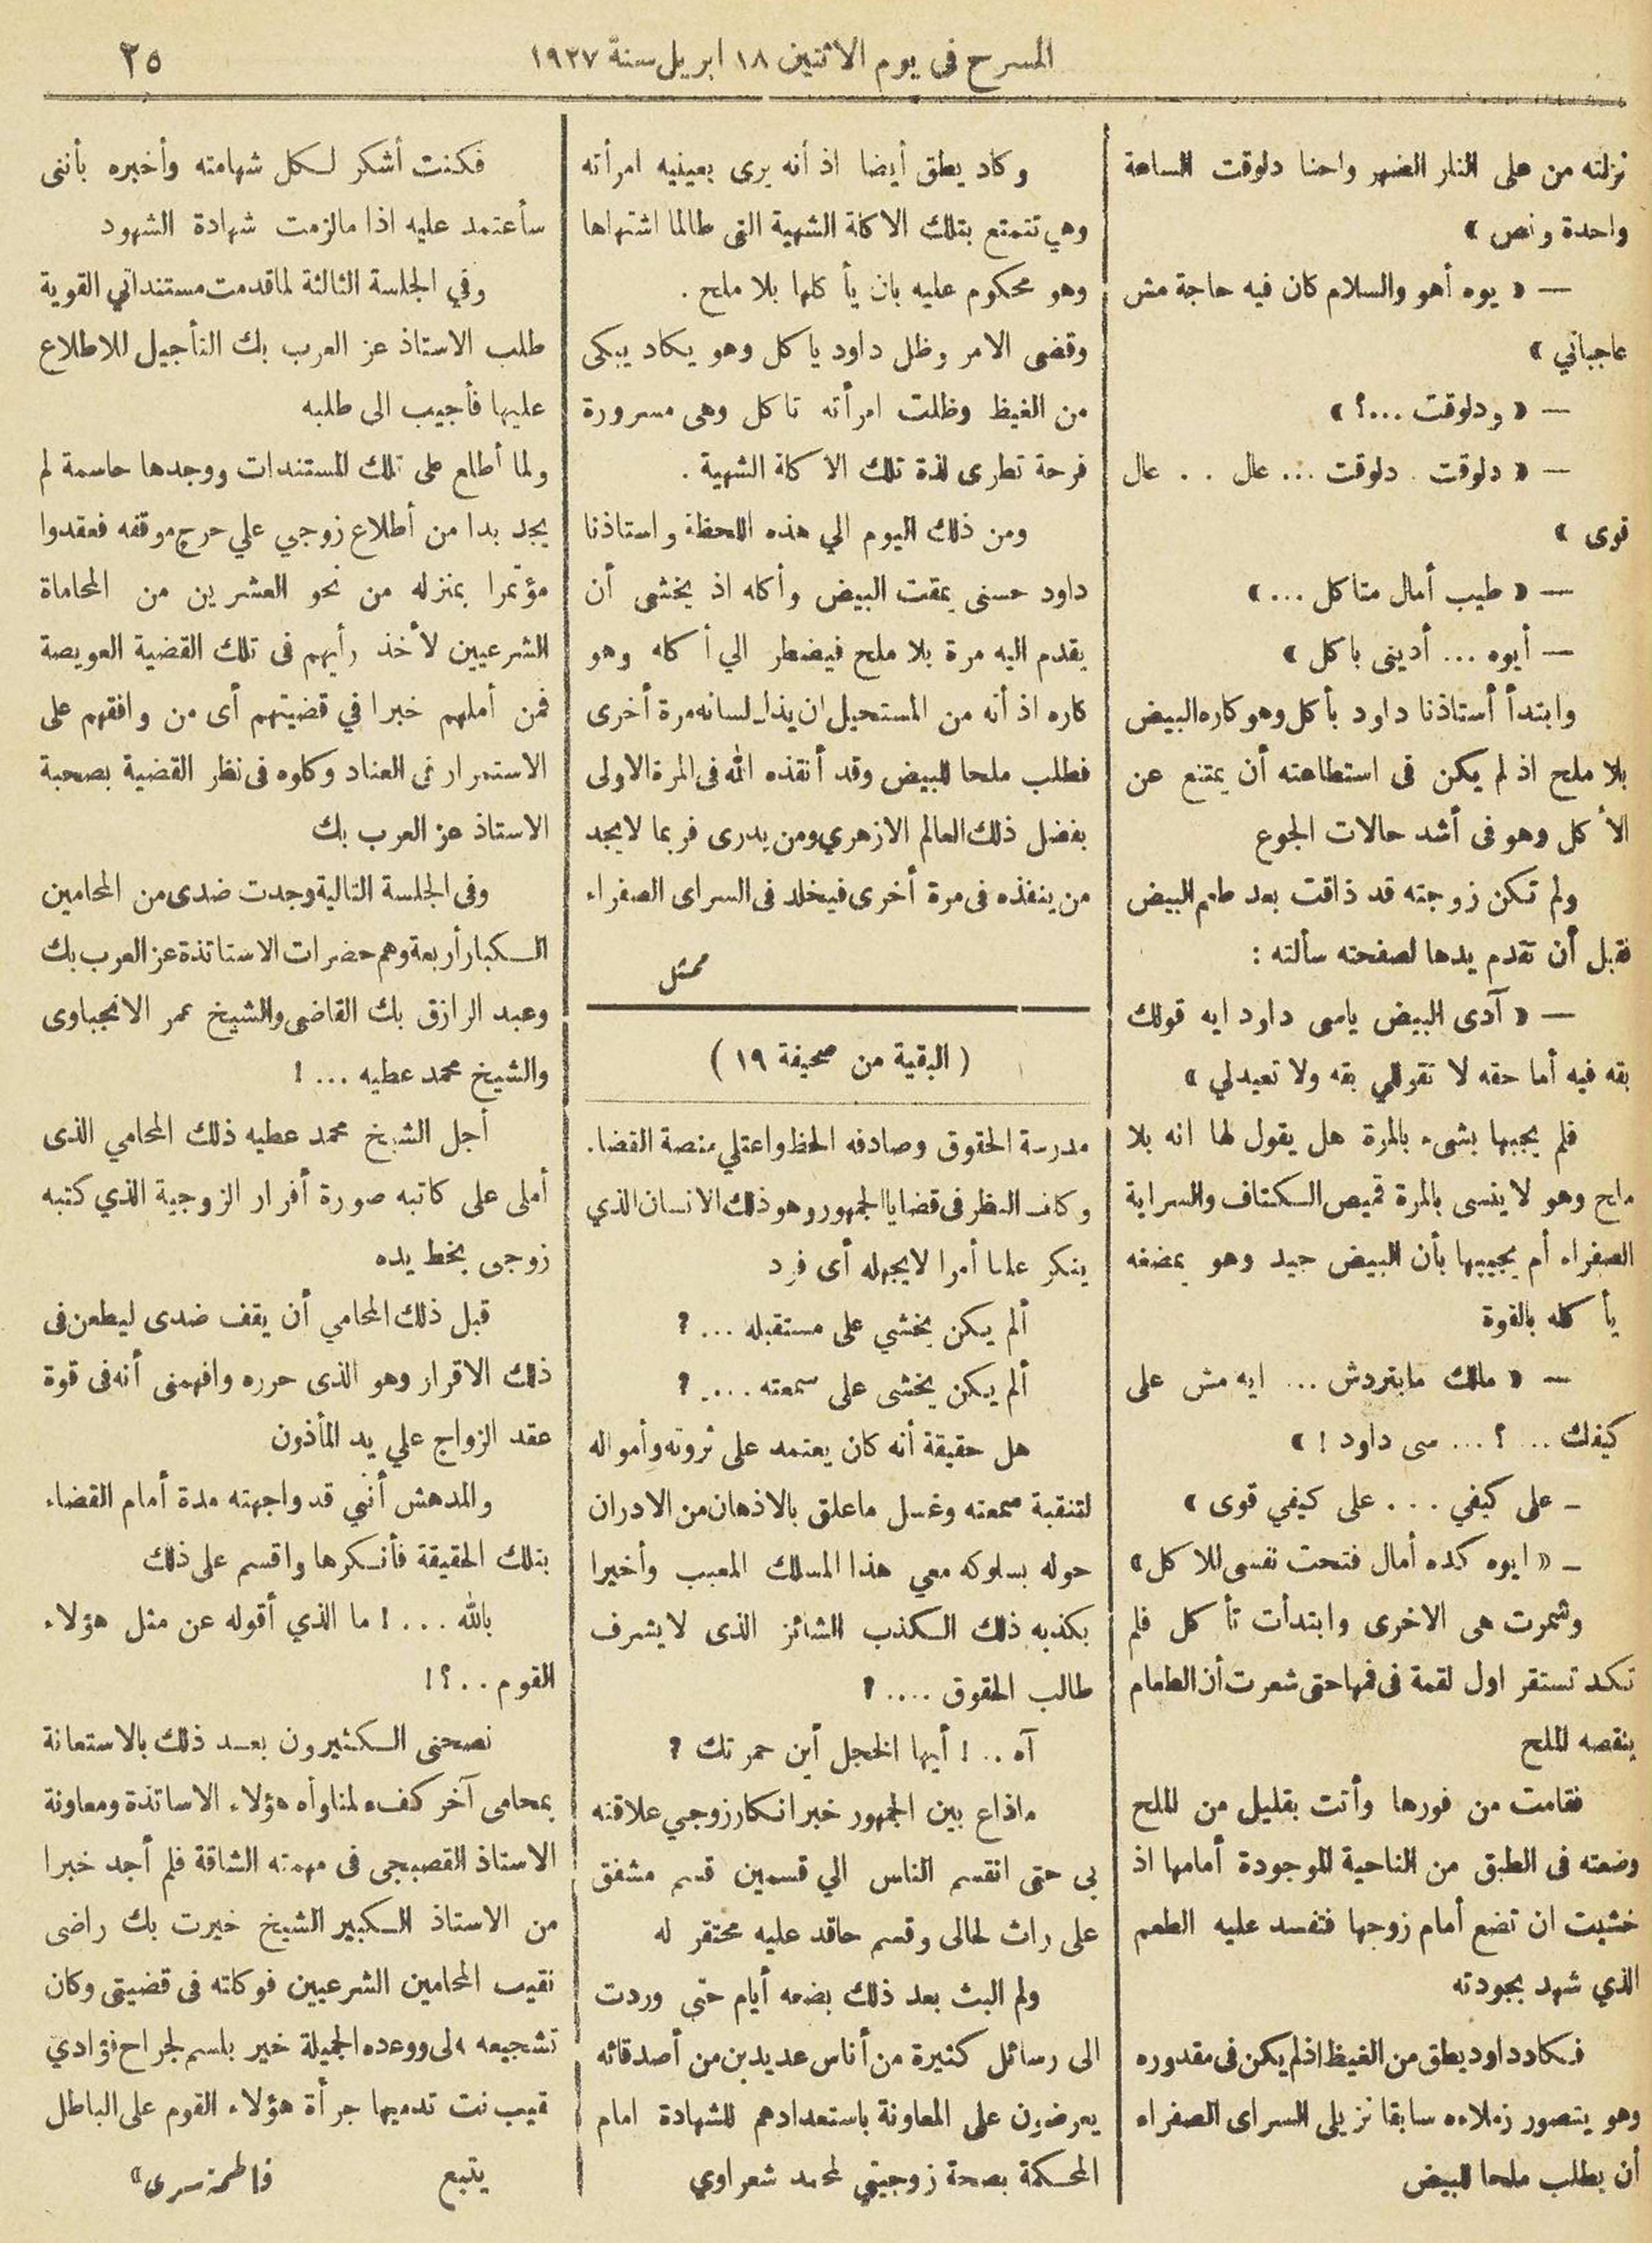 المسرح فى يوم الاثنين ١٨ ابريل سنة ١٩٢٧
٢٥
نزلته من على النار الضهر واحنا دلوقت الساعة
واحدة ونص »
— « يوه أهو والسلام كان فيه حاجة مش
عاجباني »
— « ودلوقت ...؟ »
— « دلوقت . دلوقت ... عال . . عال
قوى »
— « طيب أمال متاكل ... »
— أيوه ... أدينى باكل »
وابتدأ أستاذنا داود بأكل وهو كاره البيض
بلا ملح اذ لم يكن فى استطاعته أن يمتنع عن
الأكل وهو فى أشد حالات الجوع
ولم تكن زوجته قد ذاقت بعد طعم البيض
فقبل أن تقدم يدها لصفحته سألته :
— « آدى البيض ياسى داود ايه قولك
بقه فيه أما حقه لا تقوللي بقه ولا تعيدلي »
فلم يجبها بشىء بالمرة هل يقول لها انه بلا
ملح وهو لا ينسى بالمرة قميص الكتاف والسراية
الصفراء أم يجيبها بأن البيض جيد وهو يمضغه
يأكله بالقوة
— « مالك مابتردش ... ايه مش على
كيفك ... ؟ ... سى داود ! »
— على كيفي . . . على كيفي قوى »
— « ايوه كده أمال فتحت نفسى للاكل »
وشمرت هى الاخرى وابتدأت تأكل فلم
تكد تستقر اول لقمة فى فمها حتى شعرت أن الطعام
ينقصه الملح
فقامت من فورها وأتت بقليل من الملح
وضعته فى الطبق من الناحية الموجودة أمامها اذ
خشيت ان تضع أمام زوجها فتفسد عليه الطعم
الذي شهد بجودته
فكاد داود يطق من الغيظ اذ لم يكن فى مقدوره
وهو يتصور زملاءه سابقا نزيلى السراى الصفراء
أن يطلب ملحا للبيض
وكاد يطق أيضا اذ أنه يرى بعينيه امرأته
وهي تتمتع بتلك الاكلة الشهية التى طالما اشتهاها
وهو محكوم عليه بان يأكلها بلا ملح .
وقضى الامر وظل داود ياكل وهو يكاد يبكى
من الغيظ وظلت امرأته تاكل وهى مسرورة
فرحة تطرى لذة تلك الاكلة الشهية .
ومن ذلك اليوم الي هذه اللحظة واستاذنا
داود حسنى يمقت البيض وأكله اذ يخشى أن
يقدم اليه مرة بلا ملح فيضطر الي أكله وهو
كاره اذ أنه من المستحيل ان يذل لسانه مرة أخرى
فطلب ملحا للبيض وقد أنقذه الله فى المرة الاولى
بفضل ذلك العالم الازهري ومن يدرى فربما لا يجد
من ينقذه فى مرة أخرى فيخلد فى السراى الصفراء
ممثل
( البقية من صحيفة ١٩ )
مدرسة الحقوق وصادفه الحظ واعتلي منصة القضاء.
وكلف النظر فى قضايا الجمهور وهو ذلك الانسان الذي
ينكر علنا أمرا لا يجهله أى فرد
ألم يكن يخشي على مستقبله ... ؟
ألم يكن يخشى على سمعته .... ؟
هل حقيقة أنه كان يعتمد على ثروته وأمواله
لتنقية سمعته وغسل ماعلق بالاذهان من الادران
حوله بسلوكه معي هذا المسلك المعيب وأخيرا
بكذبه ذلك الكذب الشائن الذى لا يشرف
طالب الحقوق .... ؟
آه .. ! أيها الخجل أين حمرتك ؟
ماذاع بين الجمهور خبر انكار زوجي علاقته
بى حتى انقسم الناس الي قسمين قسم مشفق
على راث لحالى وقسم حاقد عليه محتقر له
ولم البث بعد ذلك بضعه أيام حتى وردت
الى رسائل كثيرة من أناس عديدين من أصدقائه
يعرضون على المعاونة باستعدادهم للشهادة امام
المحكمة بصحة زوجيتي لمحمد شعراوي
فكنت أشكر لكل شهامته وأخبره بأننى
سأعتمد عليه اذا مالزمت شهادة الشهود
وفي الجلسة الثالثة لما قدمت مستنداتي القوية
طلب الاستاذ عز العرب بك التأجيل للاطلاع
عليها فأجيب الى طلبه
ولما أطلع على تلك المستندات ووجدها حاسمة لم
يجد بدا من أطلاع زوجي علي حرج موقفه فعقدوا
مؤتمرا بمنزله من نحو العشرين من المحاماة
الشرعيين لأخذ رأيهم فى تلك القضية العويصة
فمن أملهم خبرا في قضيتهم أى من وافقهم على
الاستمرار فى العناد وكلوه فى نظر القضية بصحبة
الاستاذ عز العرب بك
وفى الجلسة التالية وجدت ضدى من المحامين
الكبار أربعة وهم حضرات الاستاتذة عز العرب بك
وعبد الرازق بك القاضى والشيخ عمر الانجباوى
والشيخ محمد عطيه ... !
أجل الشيخ محمد عطيه ذلك المحامي الذى
أملى على كاتبه صورة أقرار الزوجية الذي كتبه
زوجى بخط يده
قبل ذلك المحامي أن يقف ضدى ليطعن فى
ذلك الاقرار وهو الذى حرره وافهمنى أنه فى قوة
عقد الزواج علي يد المأذون
والمدهش أننى قد واجهته مدة أمام القضاء
بتلك الحقيقة فأنكرها واقسم على ذلك
بالله ... ! ما الذي أقوله عن مثل هؤلاء
القوم ..؟!
نصحنى الكثيرون بعد ذلك بالاستعانة
بمحامى آخر كفء لمناوأه هؤلاء الاساتذة ومعاونة
الاستاذ القصبجى فى مهمته الشاقة فلم أجد خبرا
من الاستاذ الكبير الشيخ خيرت بك راضى
نقيب المحامين الشرعيين فوكلته فى قضيتى وكان
تشجيعه لى ووعده الجميلة خير بلسم لجراح فؤادي
تدميها جرأة هؤلاء القوم على الباطل
يتبع
فاطمة سرى »